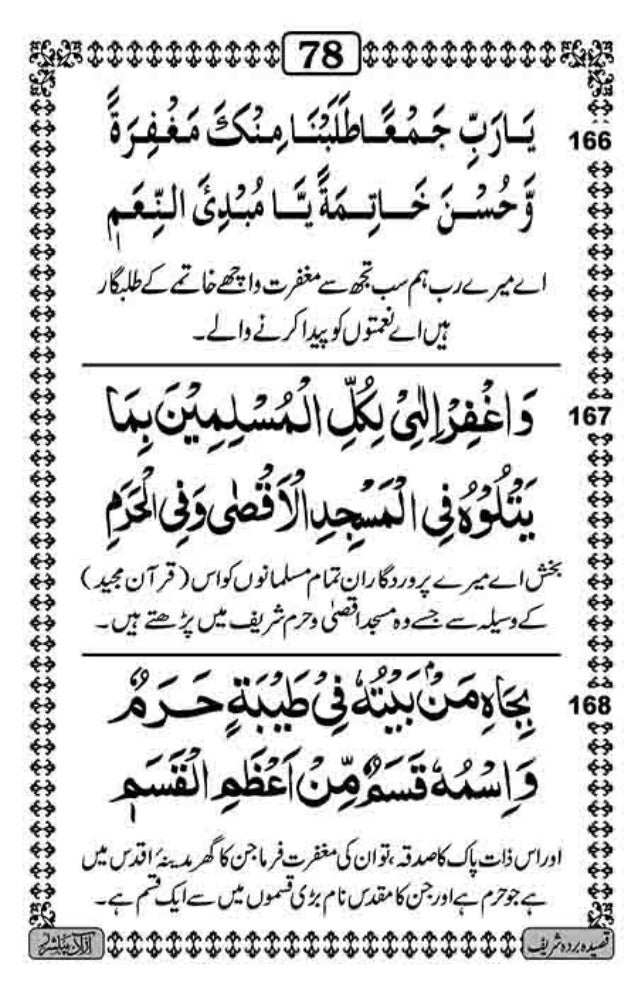 78
166
يَارَبِّ جَمْعًا طَلَبْنَا مِنْكَ مَغْفِرَةً
وَّحُسْنَ خَاتِمَةً يَّا مُبْدِئَ النِّعَمِ
اے میرے رب ہم سب تجھ سے مغفرت و اچھے خاتمے کے طلبگار
ہیں اے نعمتوں کو پیدا کرنے والے۔
167
وَاغْفِرْ اِلٰهِیْ لِكُلِّ الْمُسْلِمِيْنَ بِمَا
يَتْلُوْهُ فِی الْمَسْجِدِ الْاَقْصٰی وَفِی الْحَرَمِ
بخش اے میرے پروردگار ان تمام مسلمانوں کو اس ( قرآن مجید )
کے وسیلہ سے جسے وہ مسجد اقصیٰ و حرم شریف میں پڑھتے ہیں۔
168
بِجَاهِ مَنْ بَيْتُهٗ فِیْ طَيْبَةٍ حَرَمٌ
وَاِسْمُهٗ قَسَمٌ مِّنْ اَعْظَمِ الْقَسَمِ
اور اس ذات پاک کا صدقہ، تو ان کی مغفرت فرما جن کا گھر مدینۂ اقدس میں
ہے جو حرم ہے اور جن کا مقدس نام بڑی قسموں میں سے ایک قسم ہے۔
قصیدہ بردہ شریف